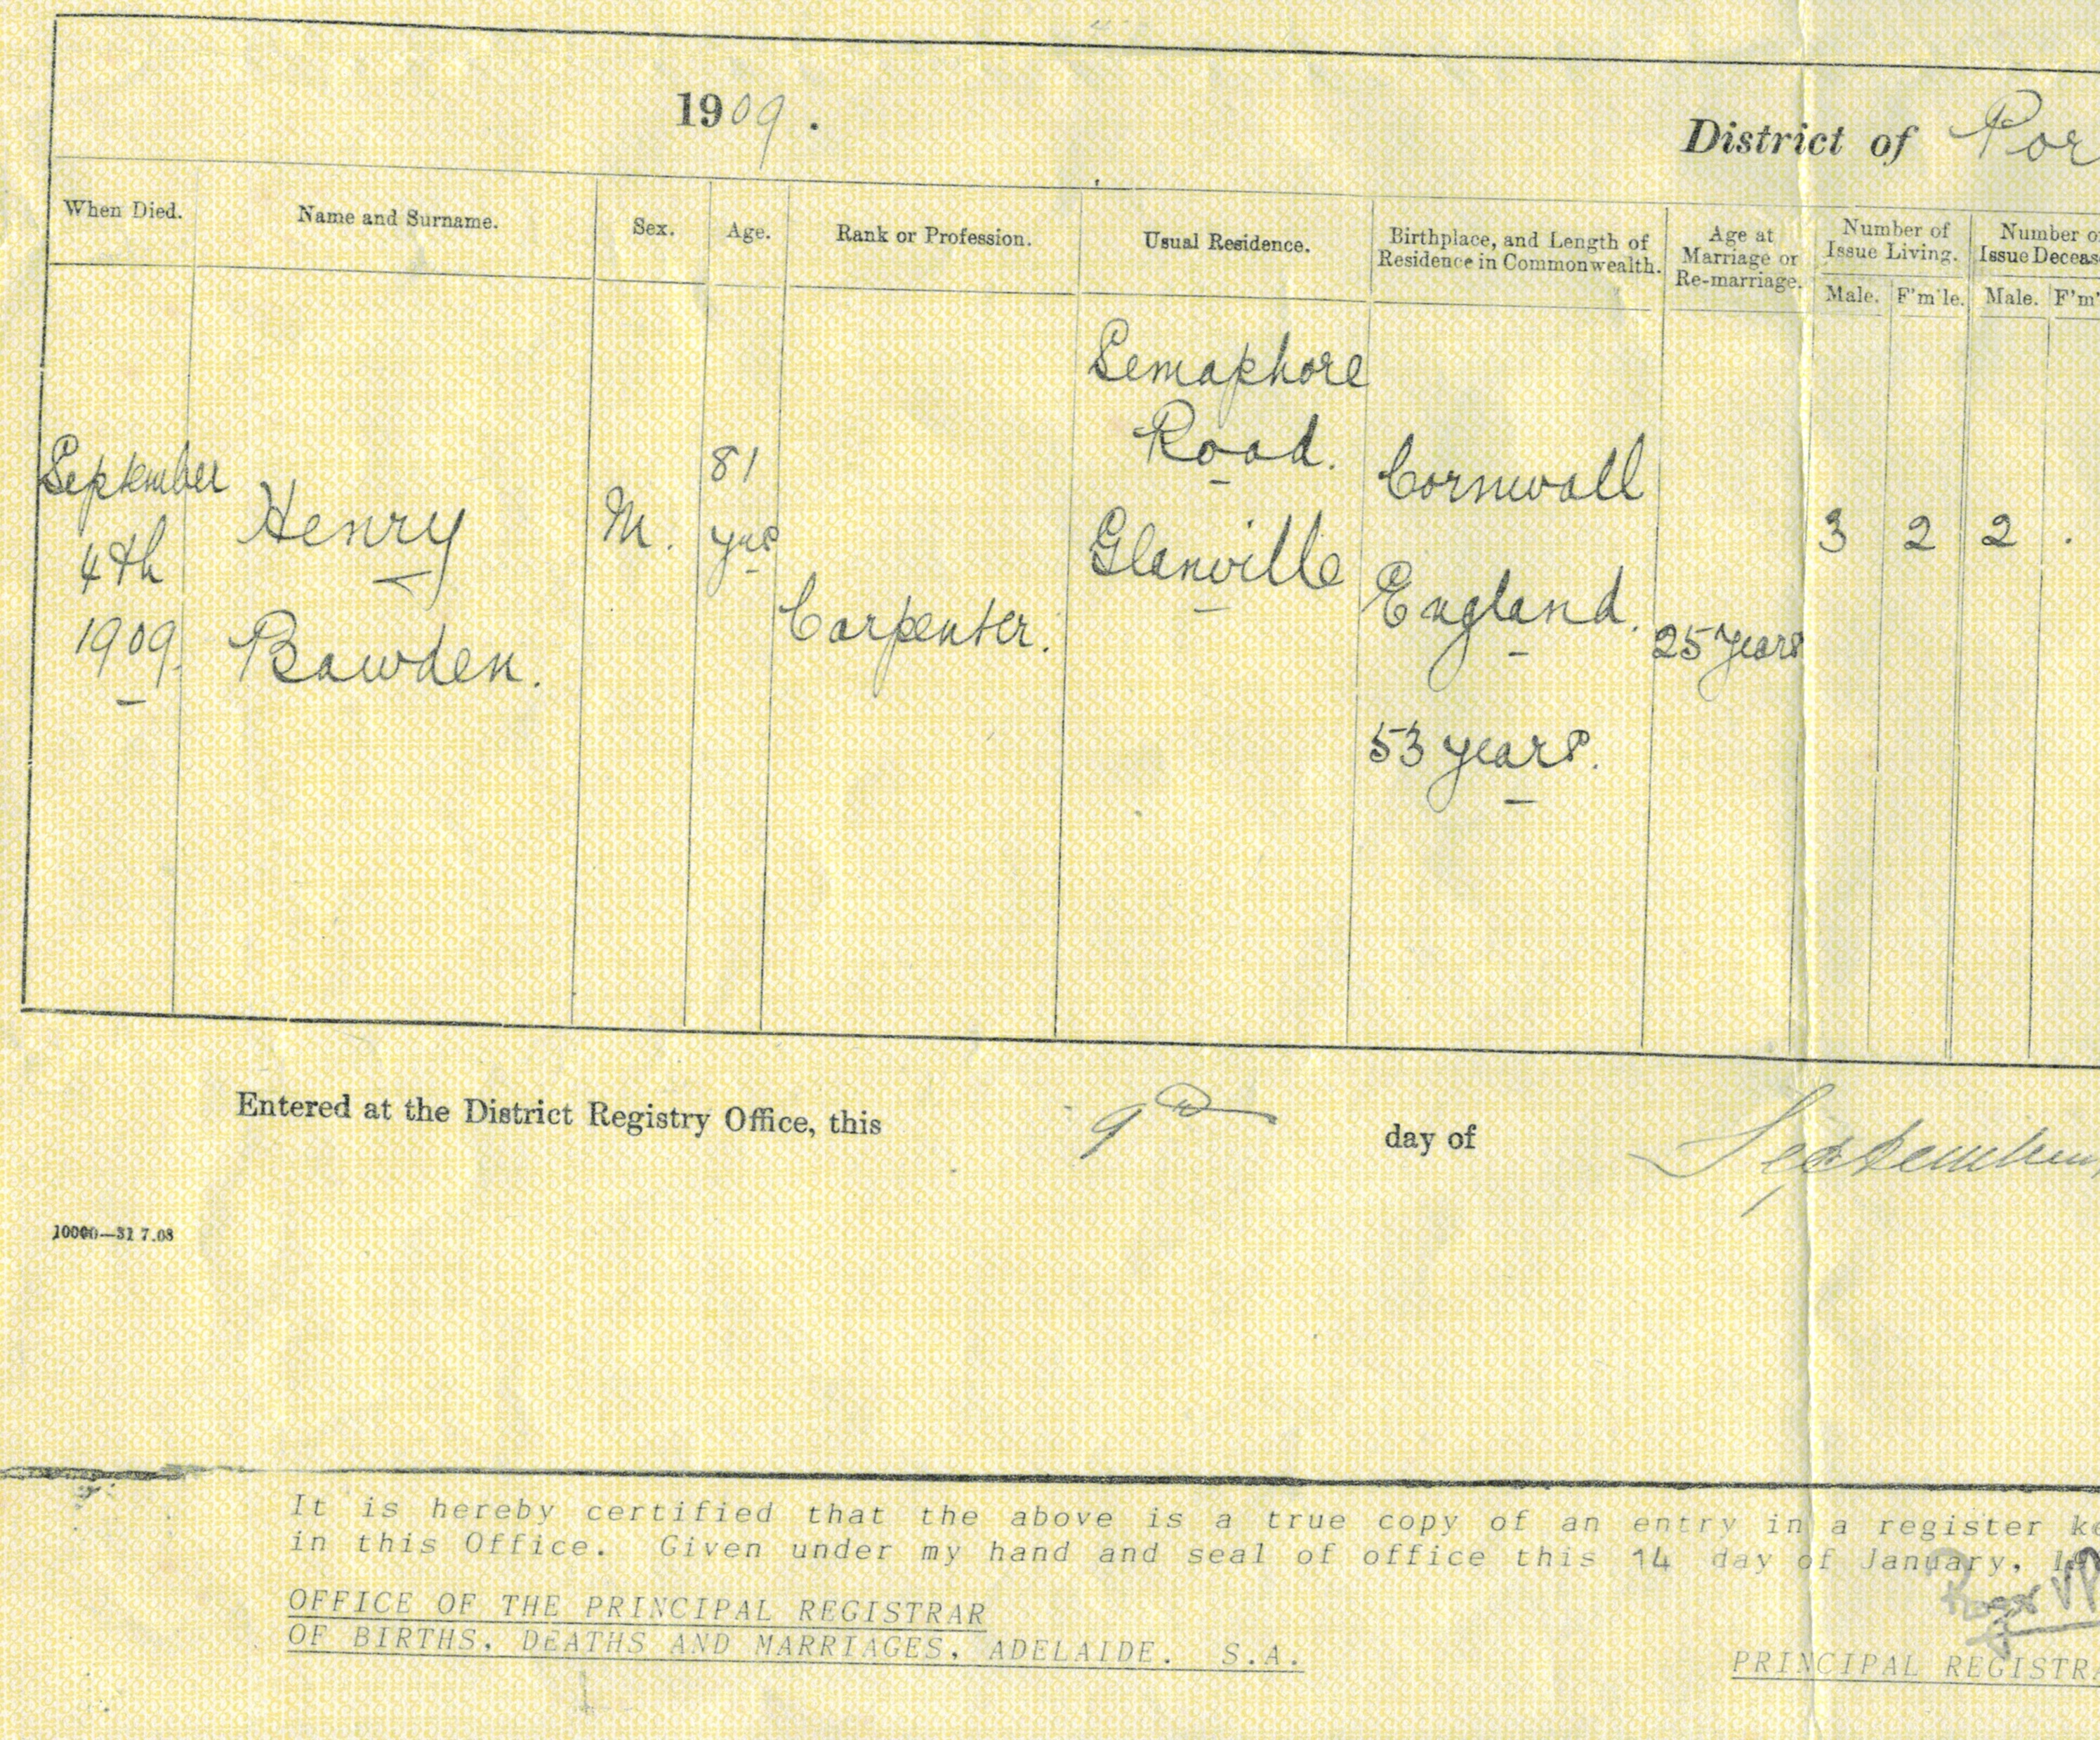 1909.
District of Por
When Died.
Name and Surname.
Sex.
Age.
Rank or Profession.
Usual Residence.
Birthplace, and Length of
Residence in Commonwealth.
Age at
Marriage or
Re-marriage.
Number of
Issue Living.
Male. F'm'le.
Number o
Issue Deceas
Male. F'm'
September
4th
1909.
Henry
Bawden.
M.
81
yrs
Carpenter.
Semaphore
Road.
Glanville
Cornwall
England.
53 years.
25 years
3
2
2
.
Entered at the District Registry Office, this 9th day of September
10000—31 7.08
It is hereby certified that the above is a true copy of an entry in a register ke
in this Office. Given under my hand and seal of office this 14 day of January, 19
OFFICE OF THE PRINCIPAL REGISTRAR
OF BIRTHS, DEATHS AND MARRIAGES, ADELAIDE. S.A.
PRINCIPAL REGISTRA